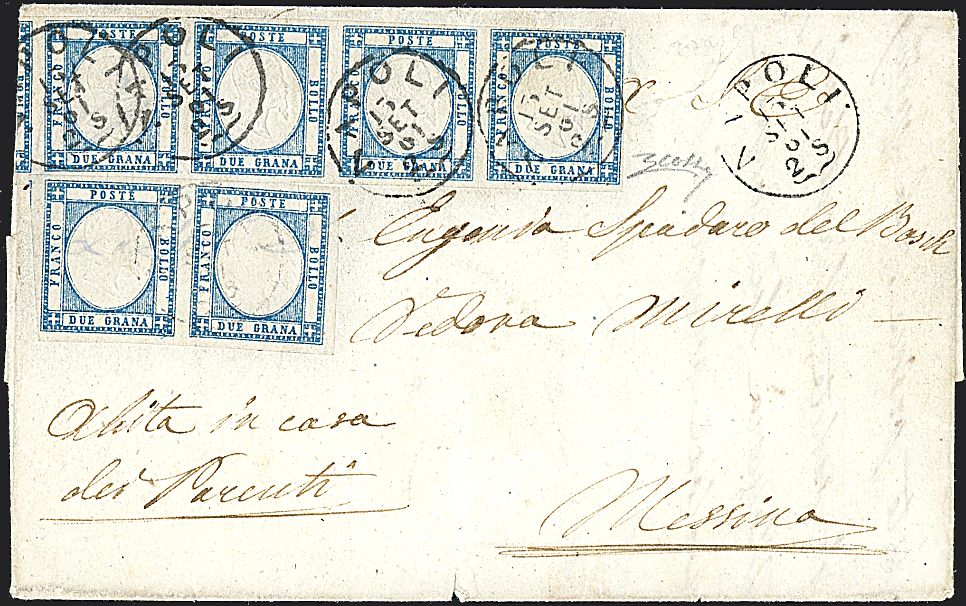 POSTE POSTE POSTE POSTE
FRANCO BOLLO FRANCO BOLLO FRANCO BOLLO FRANCO BOLLO
DUE GRANA DUE GRANA DUE GRANA DUE GRANA
NAPOLI NAPOLI NAPOLI NAPOLI NAPOLI
15 SET
POSTE POSTE
FRANCO BOLLO FRANCO BOLLO
DUE GRANA DUE GRANA
Eugenia Spadaro del Bosch
Vedova Mirelli
Abita in casa
dei Parenti
Messina